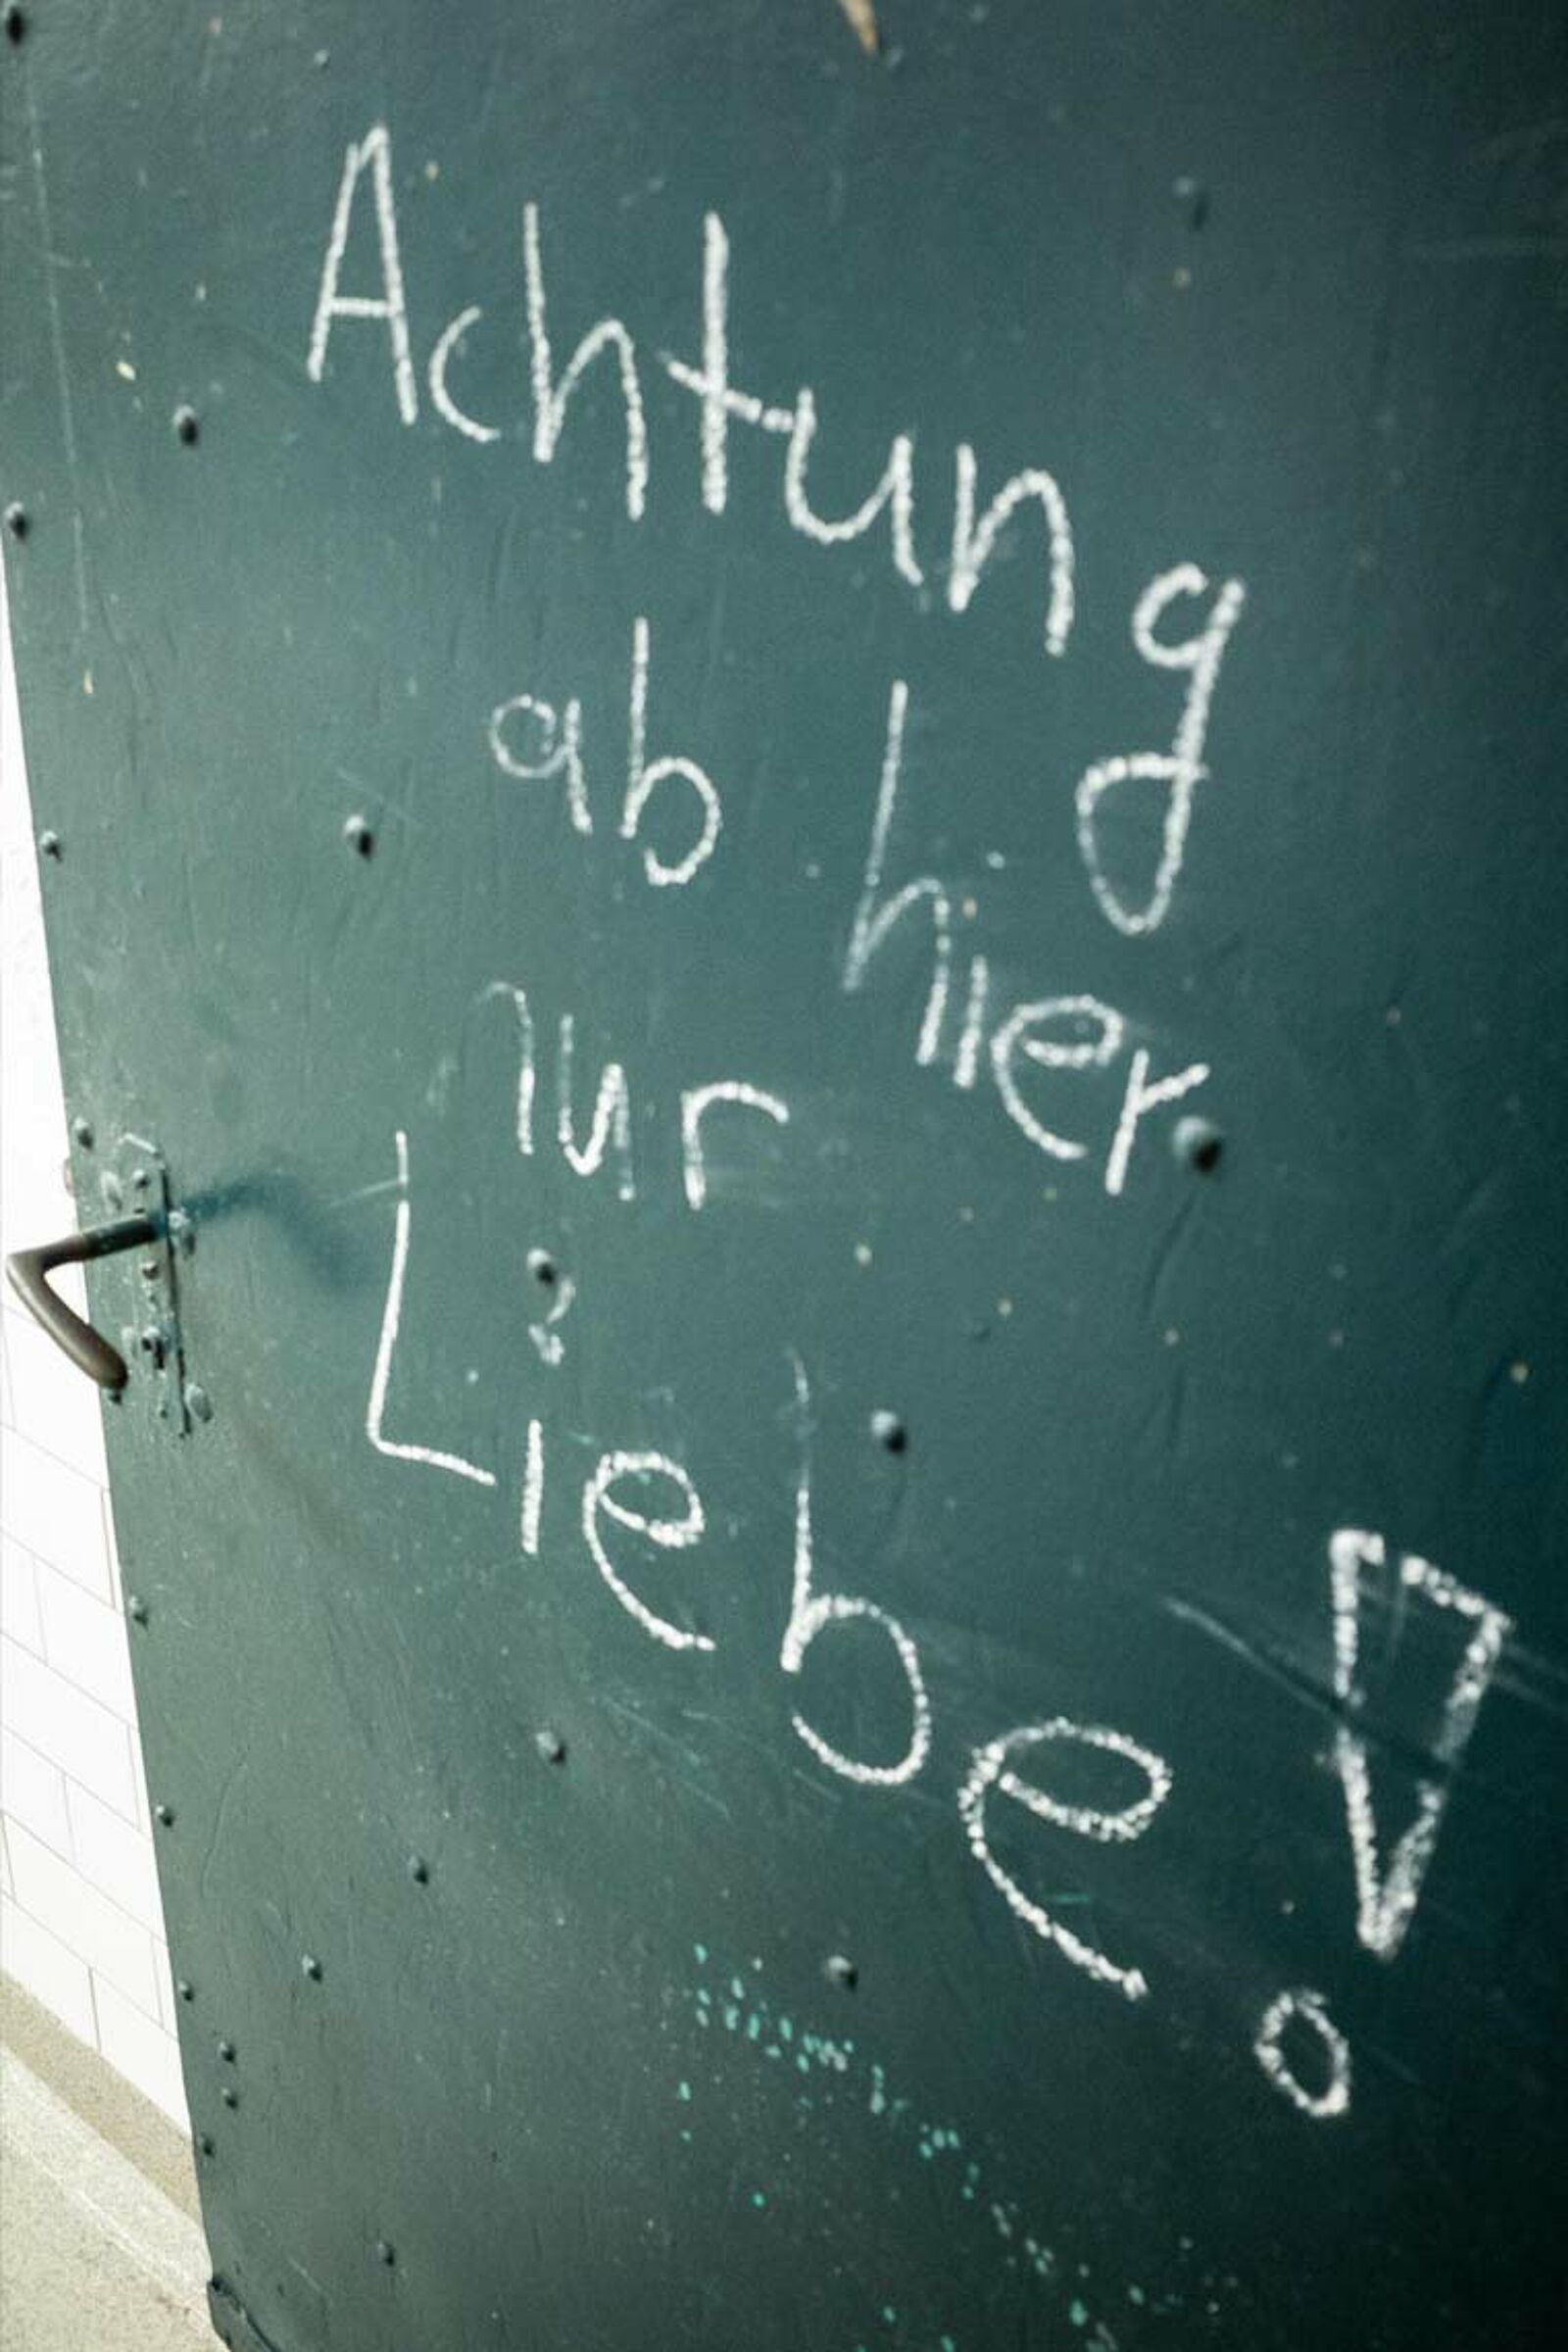 Achtung
ab hier
nur
Liebe!